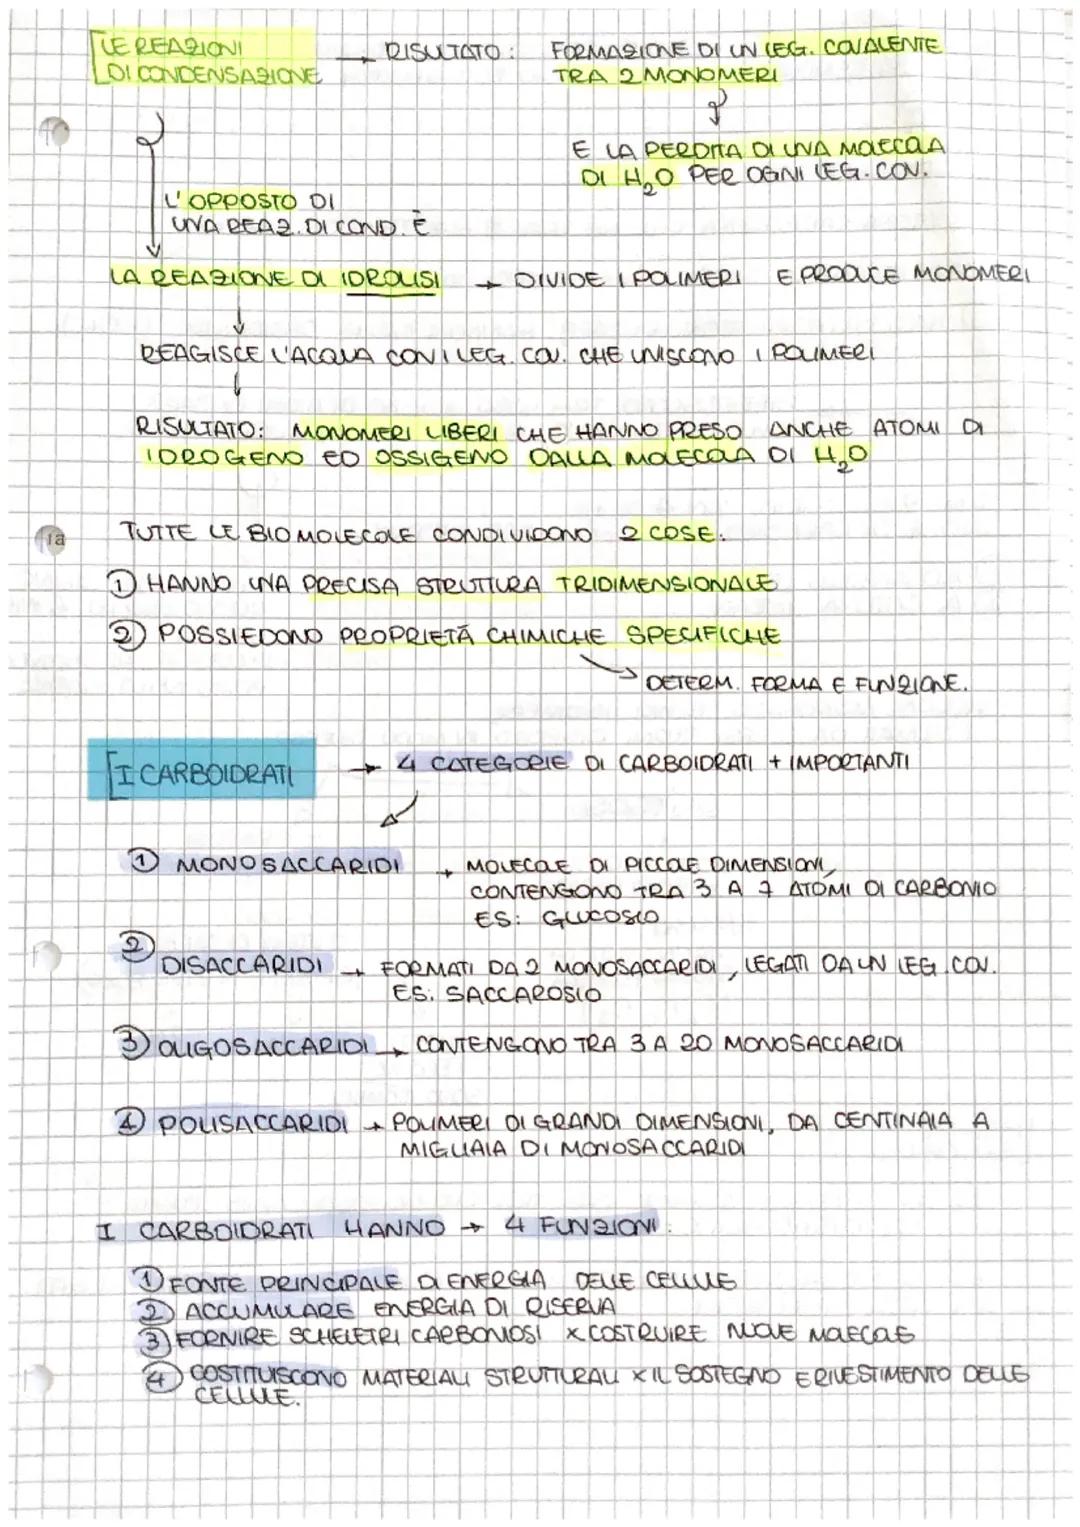 LE REAZIONI → RISULTATO: FORMAZIONE DI UN LEG. COVALENTE
DI CONDENSAZIONE TRA 2 MONOMERI
E LA PERDITA DI UNA MOLECOLA
DI H₂O PER OGNI LEG. COV.
L'OPPOSTO DI
UNA REAZ. DI COND. È
LA REAZIONE DI IDROLISI → DIVIDE I POLIMERI E PRODUCE MONOMERI
REAGISCE L'ACQUA CON I LEG. COV. CHE UNISCONO I POLIMERI
RISULTATO: MONOMERI LIBERI CHE HANNO PRESO ANCHE ATOMI DI
IDROGENO ED OSSIGENO DALLA MOLECOLA DI H₂O
TUTTE LE BIOMOLECOLE CONDIVIDONO 2 COSE:
① HANNO UNA PRECISA STRUTTURA TRIDIMENSIONALE
② POSSIEDONO PROPRIETÀ CHIMICHE SPECIFICHE
DETERM. FORMA E FUNZIONE.
I CARBOIDRATI → 4 CATEGORIE DI CARBOIDRATI + IMPORTANTI
① MONOSACCARIDI → MOLECOLE DI PICCOLE DIMENSIONI,
CONTENGONO TRA 3 A 7 ATOMI DI CARBONIO
ES: GLUCOSIO
② DISACCARIDI → FORMATI DA 2 MONOSACCARIDI, LEGATI DA UN LEG. COV.
ES: SACCAROSIO
③ OLIGOSACCARIDI → CONTENGONO TRA 3 A 20 MONOSACCARIDI
④ POLISACCARIDI → POLIMERI DI GRANDI DIMENSIONI, DA CENTINAIA A
MIGLIAIA DI MONOSACCARIDI
I CARBOIDRATI HANNO → 4 FUNZIONI:
① FONTE PRINCIPALE DI ENERGIA DELLE CELLULE
② ACCUMULARE ENERGIA DI RISERVA
③ FORNIRE SCHELETRI CARBONIOSI X COSTRUIRE NUOVE MOLECOLE
④ COSTITUISCONO MATERIALI STRUTTURALI X IL SOSTEGNO E RIVESTIMENTO DELLE
CELLULE.